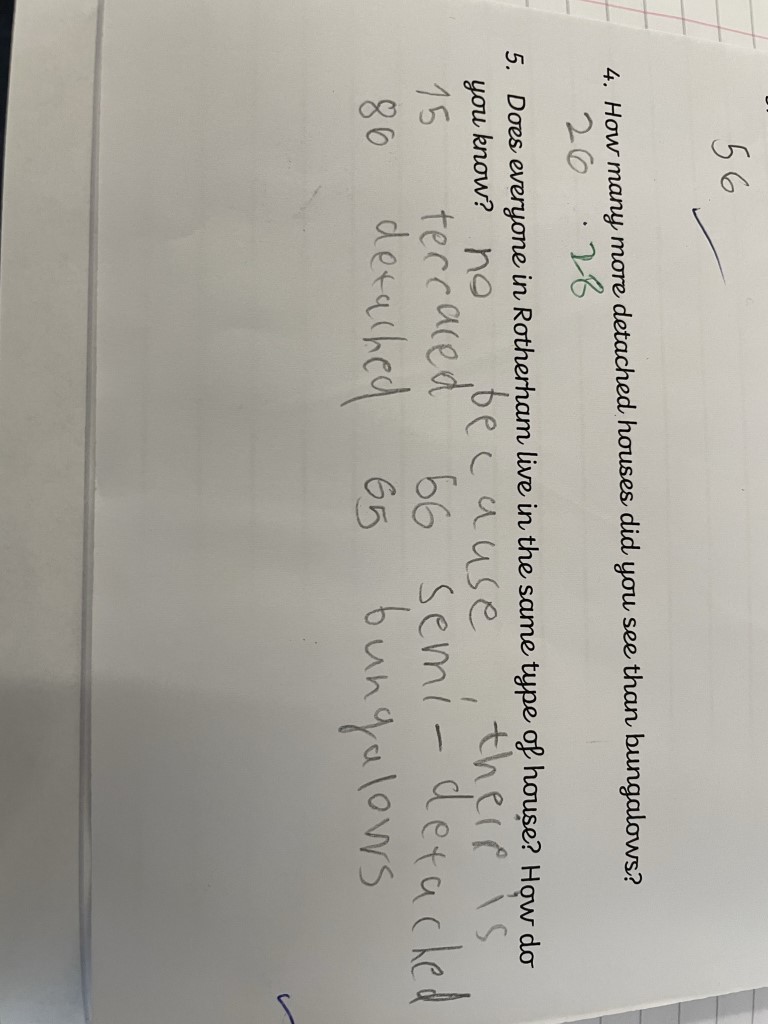 56 ✓
4. How many more detached houses did you see than bungalows?
26 . 28
5. Does everyone in Rotherham live in the same type of house? How do
you know? no because there is
15 terraced 56 semi-detached
86 detached 65 bungalows